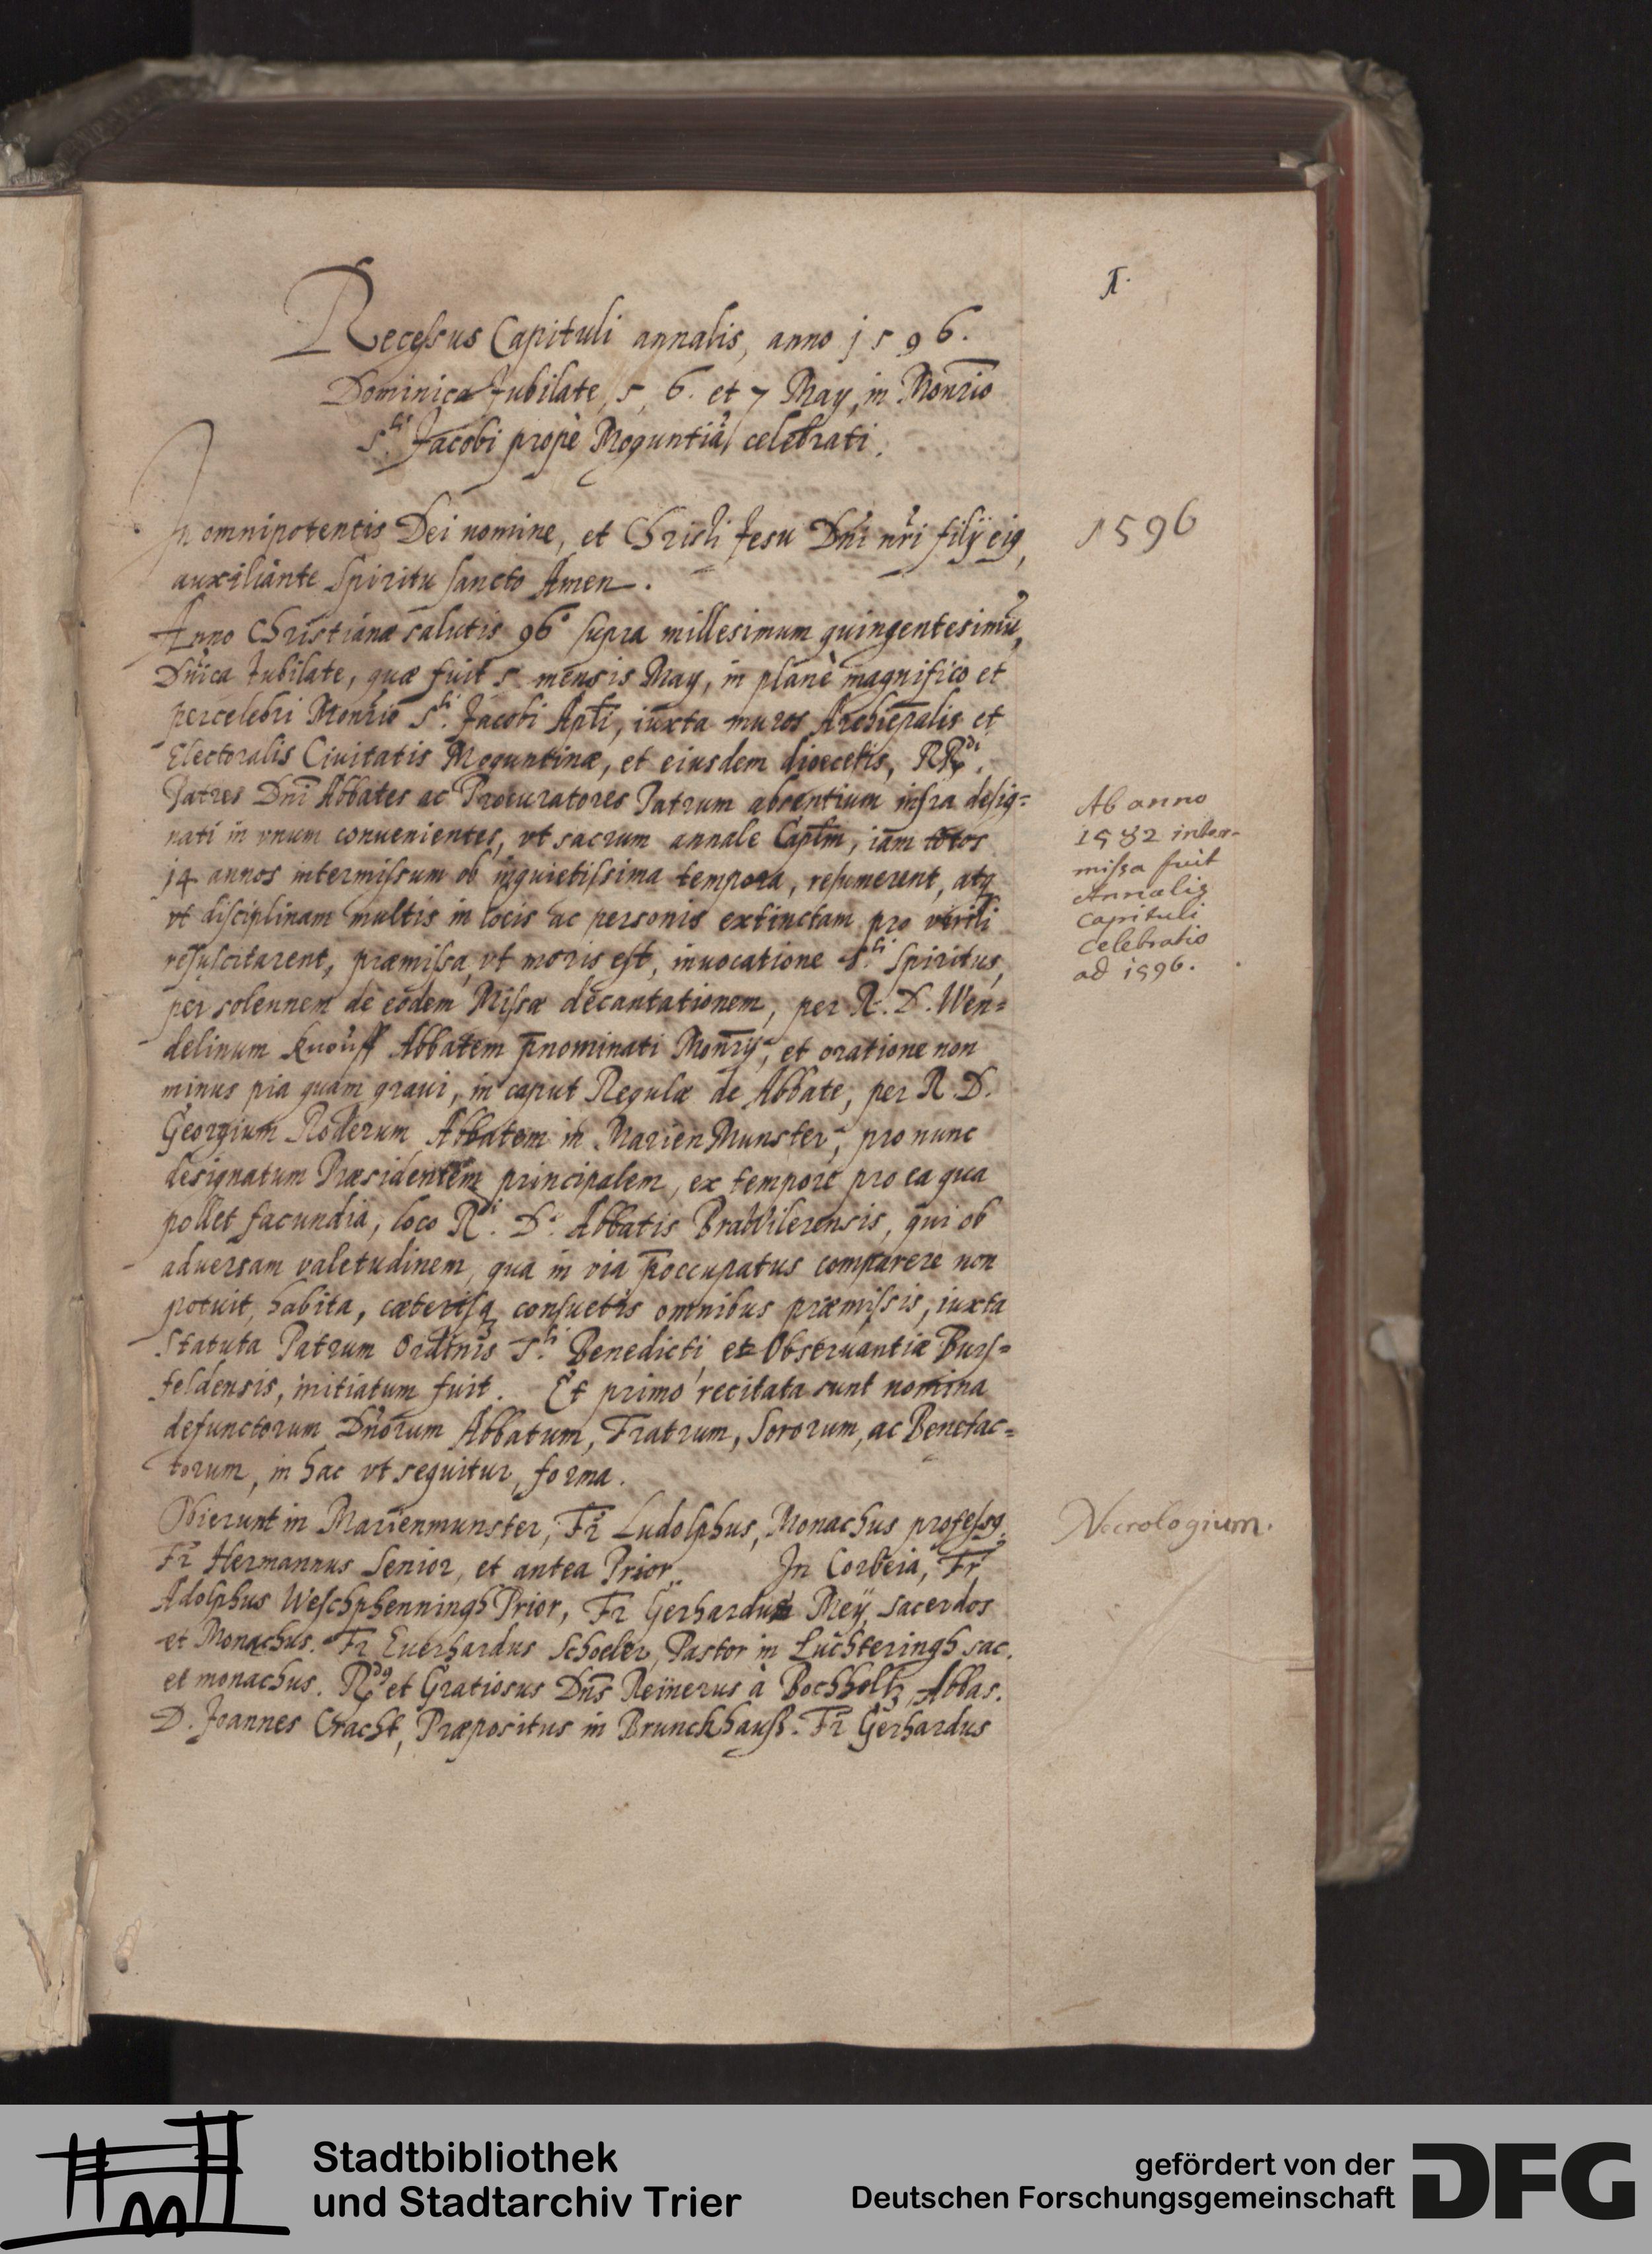 1.
Recessus Capituli annalis, anno 1596.
Dominica Jubilate, 5, 6. et 7 May, in Monrio
S.ti Jacobi propè Moguntiã, celebrati.
In omnipotentis Dei nomine, et Christi Jesu Dñi nr̃i filij eiꝰ,
1596
auxiliante Spiritu sancto Amen.
Anno Christianæ salutis 96° supra millesimum quingentesimũ,
Dñica Jubilate, quæ fuit 5 mensis May, in planè magnifico et
percelebri Monrio S.ti Jacobi Apl̃i, iuxta muros Archiep̃alis et
Electoralis Ciuitatis Moguntinæ, et eiusdem dioecesis, RR.di
Patres Dñi Abbates ac Procuratores Patrum absentium infra desig=
nati in vnum conuenientes, vt sacrum annale Capl̃m, iam totos
14 annos intermissum ob inquietissima tempora, resumerent, atq
vt disciplinam multis in locis ac personis extinctam pro virili
resuscitarent, præmissa, vt moris est, inuocatione S.ti Spiritus,
Ab anno
1582 inter-
missa fuit
Annaliꝰ
capituli
celebratio
ad 1596.
per solennem de eodem Missæ decantationem, per R. D. Wen=
delinum Knouff Abbatem p̃nominati Monrÿ, et oratione non
minus pia quam graui, in caput Regulæ de Abbate, per R. D.
Georgium Röderum Abbatem in MarienMunster, pro nunc
designatum Præsidentem principalem, ex tempore pro ea qua
pollet facundia, loco R.di D. Abbatis BraWilerensis, qui ob
aduersam valetudinem, qua in via p̃occupatus comparere non
potuit, habita, cæterisq consuetis omnibus præmissis, iuxta
Statuta Patrum Ordinis S.ti Benedicti, et Obseruantiæ Burs=
feldensis, initiatum fuit. Et primo recitata sunt nomina
defunctorum Dñorum Abbatum, Fratrum, Sororum, ac Benefac=
torum, in hac vt sequitur, forma.
Obierunt in Marienmunster, Fr̃ Ludolphus, Monachus professꝰ.
Necrologium.
Fr̃ Hermannus Senior, et antea Prior. In Corbeia, Fr̃
Adolphus Weschphenningh Prior, Fr̃ Gerhardus Meÿ, Sacerdos
et Monachus. Fr̃ Euerhardus Schoeler, Pastor in Lüchteringh sac.
et monachus. R.dꝰ et Gratiosus Dñs Reinerus à Bochholtz, Abbas.
D. Joannes Cracht, Præpositus in Brunckhauß. Fr̃ Gerhardus
Stadtbibliothek
und Stadtarchiv Trier
gefördert von der
Deutschen Forschungsgemeinschaft
DFG